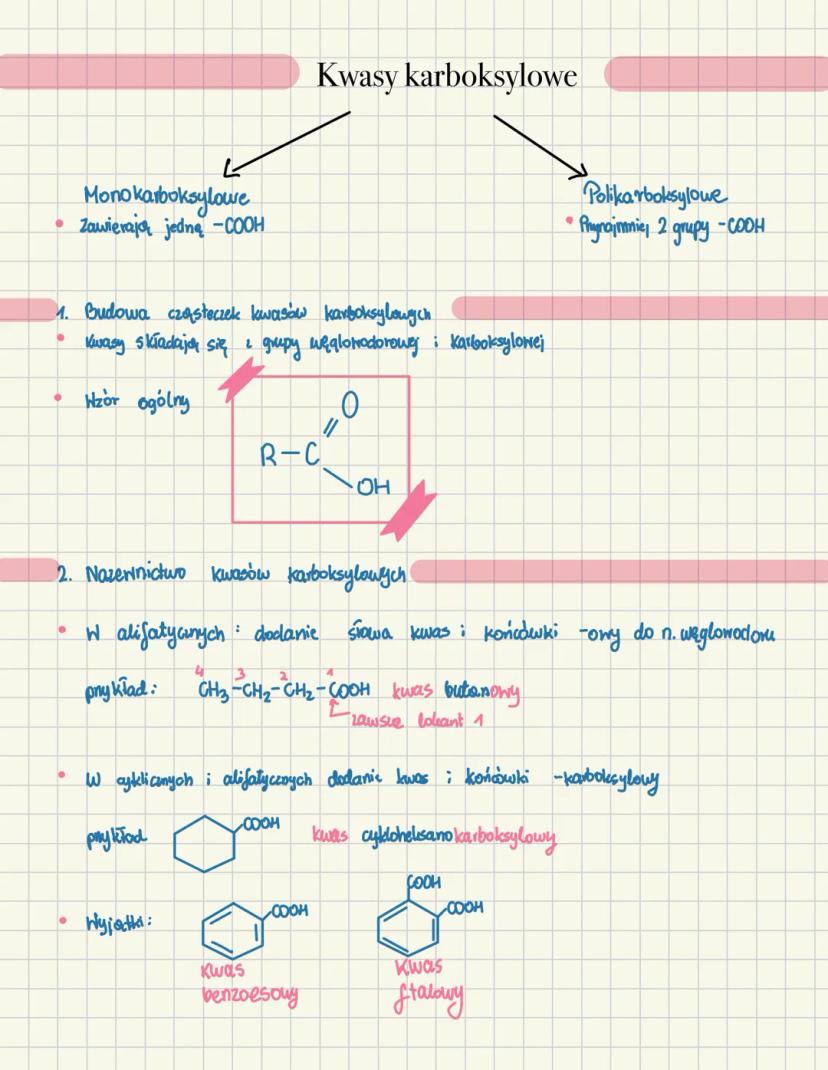 Kwasy karboksylowe
Monokarboksylowe
• Zawierają jedną -COOH
Polikarboksylowe
• Przynajmniej 2 grupy -COOH
1. Budowa cząsteczek kwasów karboksylowych
• Kwasy składają się z grupy węglowodorowej i karboksylowej
• Wzór ogólny
O
R-C
OH
2. Nazewnictwo kwasów karboksylowych
• W alifatycznych : dodanie słowa kwas i końcówki -owy do n. węglowodoru
4 3 2 1
przykład: CH₃-CH₂-CH₂-COOH kwas butanowy
zawsze lokant 1
• W cyklicznych i alifatycznych dodanie kwas i końcówki -karboksylowy
COOH
przykład kwas cykloheksanokarboksylowy
COOH
• Wyjątki: COOH COOH
kwas benzoesowy
kwas ftalowy